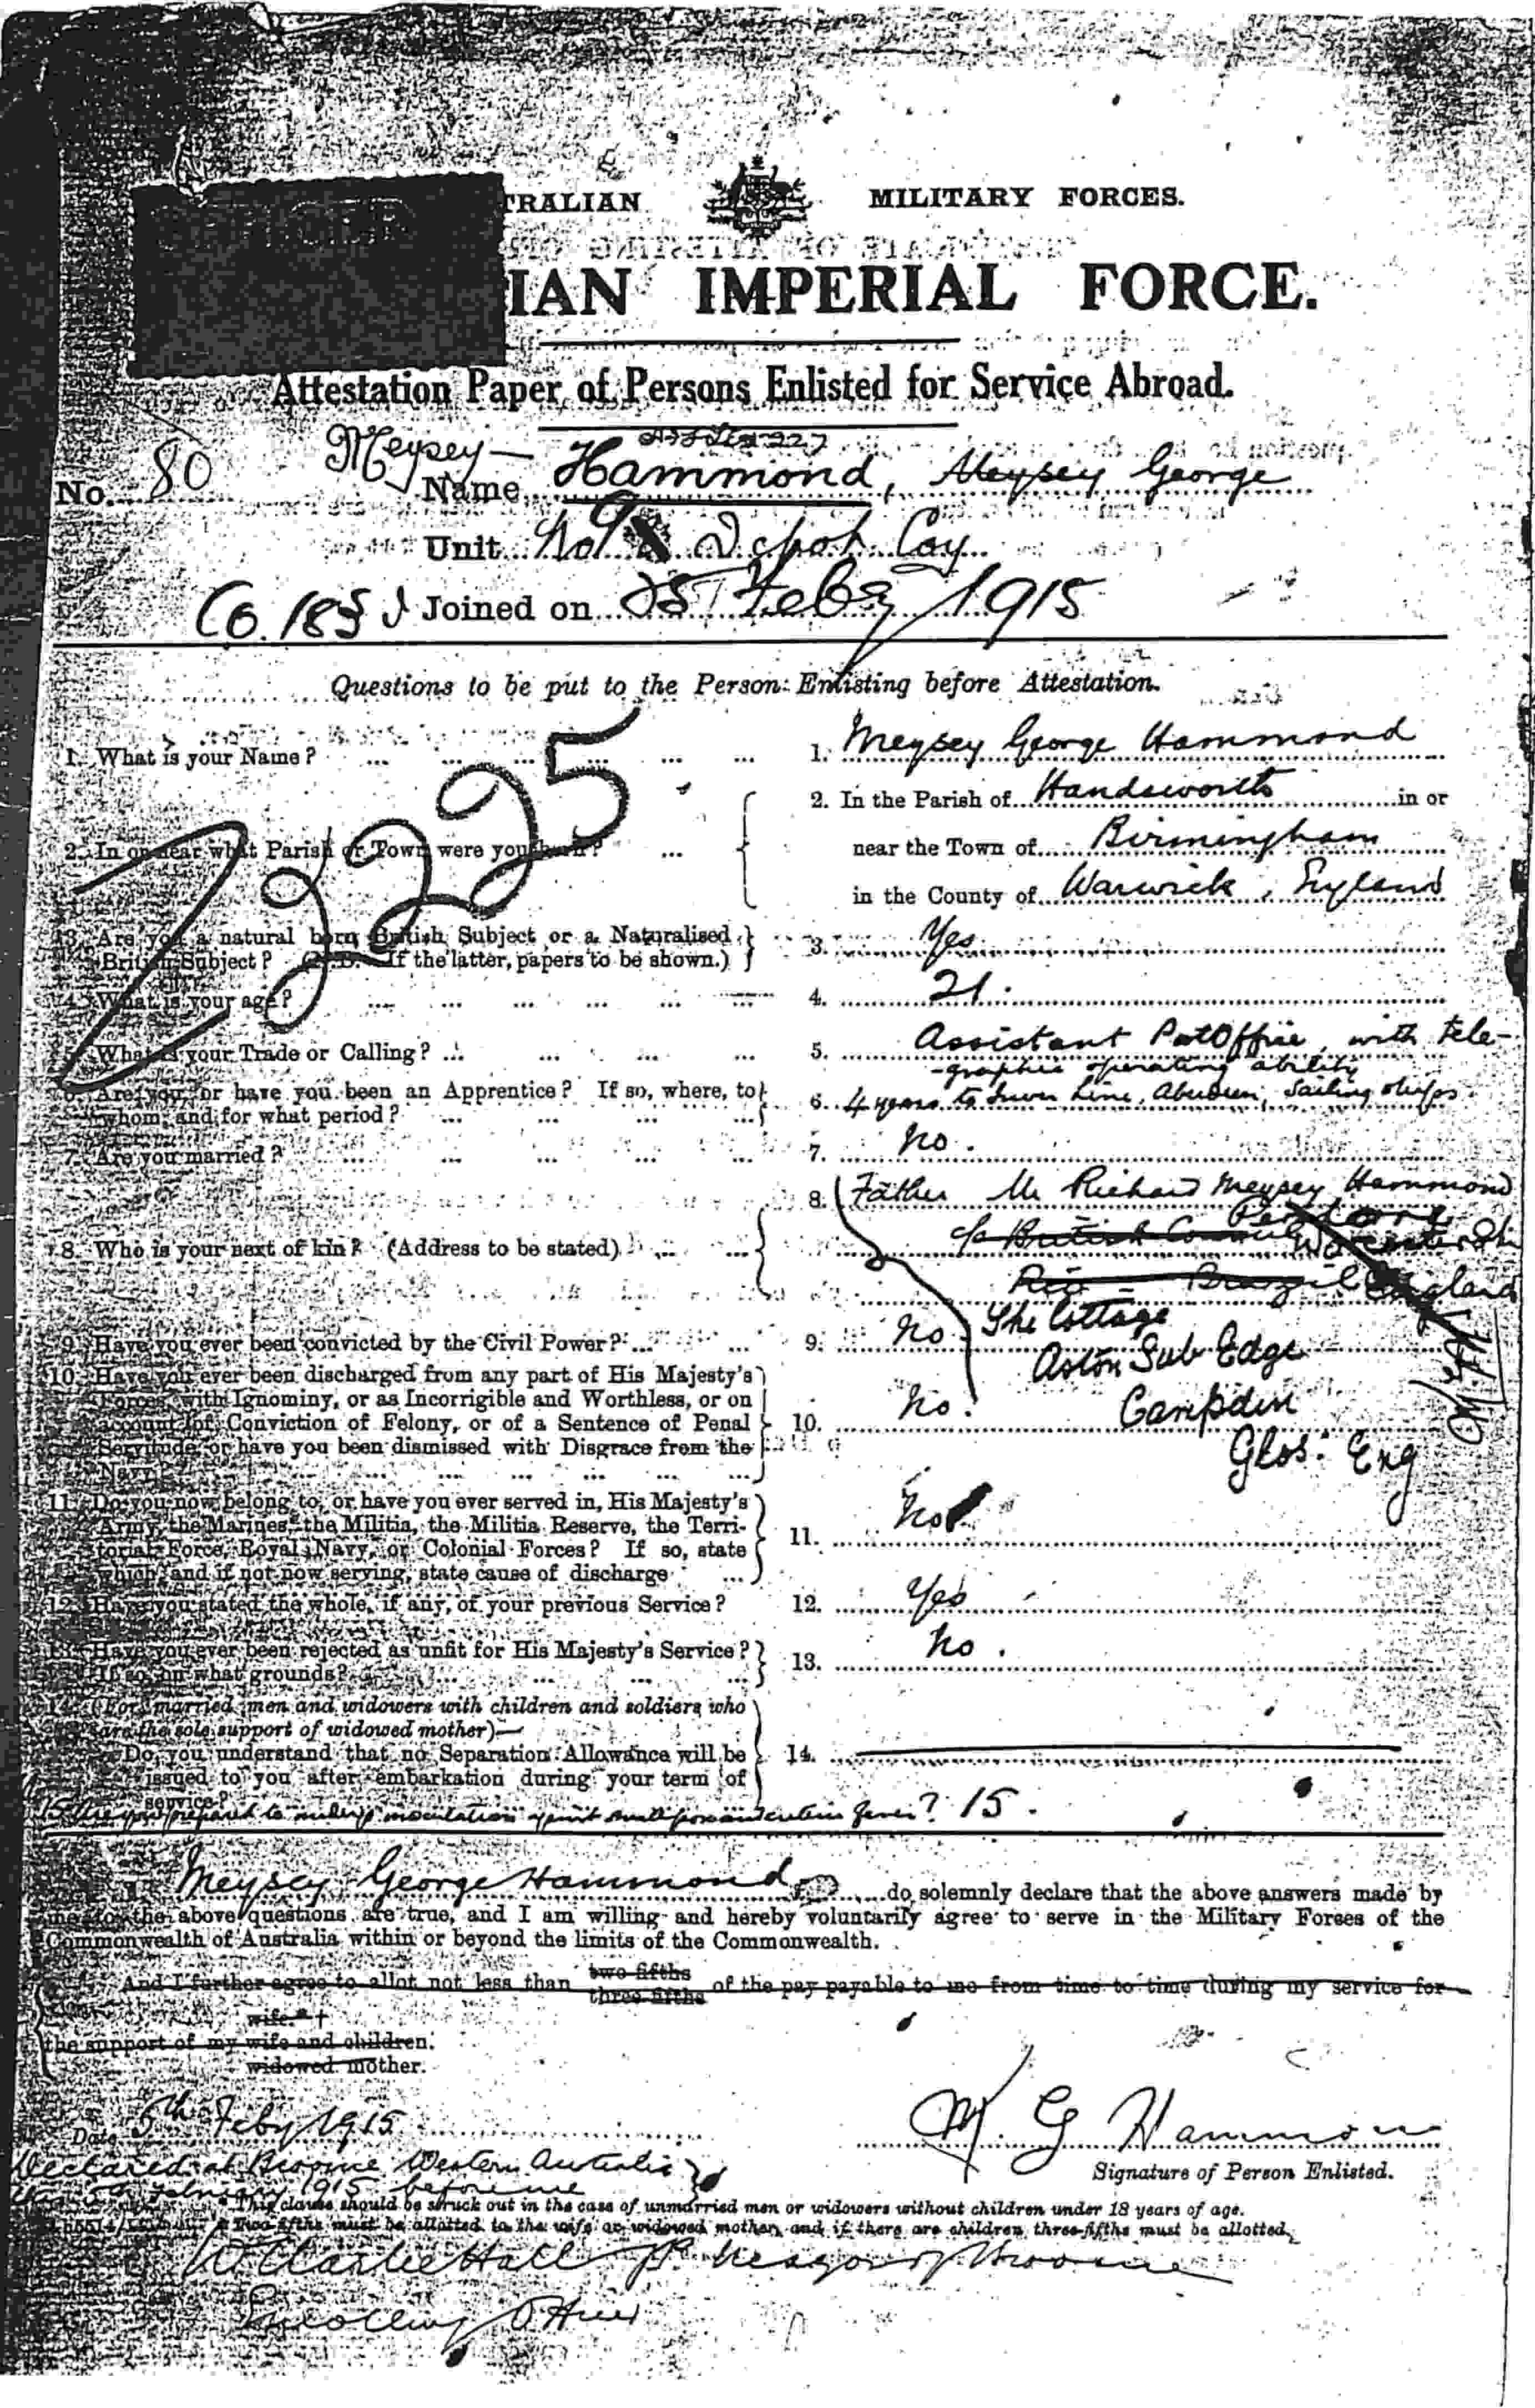 TRALIAN MILITARY FORCES.
IAN IMPERIAL FORCE.
Attestation Paper of Persons Enlisted for Service Abroad.
Meysey-
No. 80 Name Hammond, Meysey George
Unit No 9 Depot Coy
Joined on 25 Feby 1915
Questions to be put to the Person Enlisting before Attestation.
73225
1. What is your Name? ... 1. Meysey George Hammond
2. In or near what Parish or Town were you born? ... 2. In the Parish of Handsworth in or
near the Town of Birmingham
in the County of Warwick, England
3. Are you a natural born British Subject or a Naturalised
British Subject? (N.B. If the latter, papers to be shown.) 3. Yes
4. What is your age? ... 4. 21.
5. What is your Trade or Calling? ... 5. Assistant PostOffice, with tele-
-graphic operating ability
6. Are you, or have you been an Apprentice? If so, where, to
whom, and for what period? ... 6. 4 years to Line, Aberdeen, Sailing ships.
7. Are you married? ... 7. No.
8. Who is your next of kin? (Address to be stated) ... 8. Father Mr Richard Meysey Hammond
c/o British Consul
Rio Brazil England
The Cottage
Aston Sub Edge
Campden
Glos. Eng
9. Have you ever been convicted by the Civil Power? ... 9. No.
10. Have you ever been discharged from any part of His Majesty's
Forces, with Ignominy, or as Incorrigible and Worthless, or on
account of Conviction of Felony, or of a Sentence of Penal
Servitude, or have you been dismissed with Disgrace from the
Navy? ... 10. No.
11. Do you now belong to, or have you ever served in, His Majesty's
Army, the Marines, the Militia, the Militia Reserve, the Terri-
torial Force, Royal Navy, or Colonial Forces? If so, state
which, and if not now serving, state cause of discharge ... 11. No
12. Have you stated the whole, if any, of your previous Service? 12. Yes
13. Have you ever been rejected as unfit for His Majesty's Service?
If so, on what grounds? ... 13. No.
14. (For married men and widowers with children and soldiers who
are the sole support of widowed mother)—
Do you understand that no Separation Allowance will be
issued to you after embarkation during your term of
service? 14.
15. Are you prepared to undergo inoculation against smallpox and enteric fever? 15.
Meysey George Hammond do solemnly declare that the above answers made by
me to the above questions are true, and I am willing and hereby voluntarily agree to serve in the Military Forces of the
Commonwealth of Australia within or beyond the limits of the Commonwealth.
And I further agree to allot not less than two-fifths three-fifths of the pay payable to me from time to time during my service for
wife
the support of my wife and children.
widowed mother.
Date 5th Feby 1915
M. G Hammon
Signature of Person Enlisted.
Declared at Broome Western Australia
February 1915 before me
* This clause should be struck out in the case of unmarried men or widowers without children under 18 years of age.
† Two-fifths must be allotted to the wife or widowed mother, and if there are children three-fifths must be allotted.
Hall Mayor of Broome
Enrolling Officer